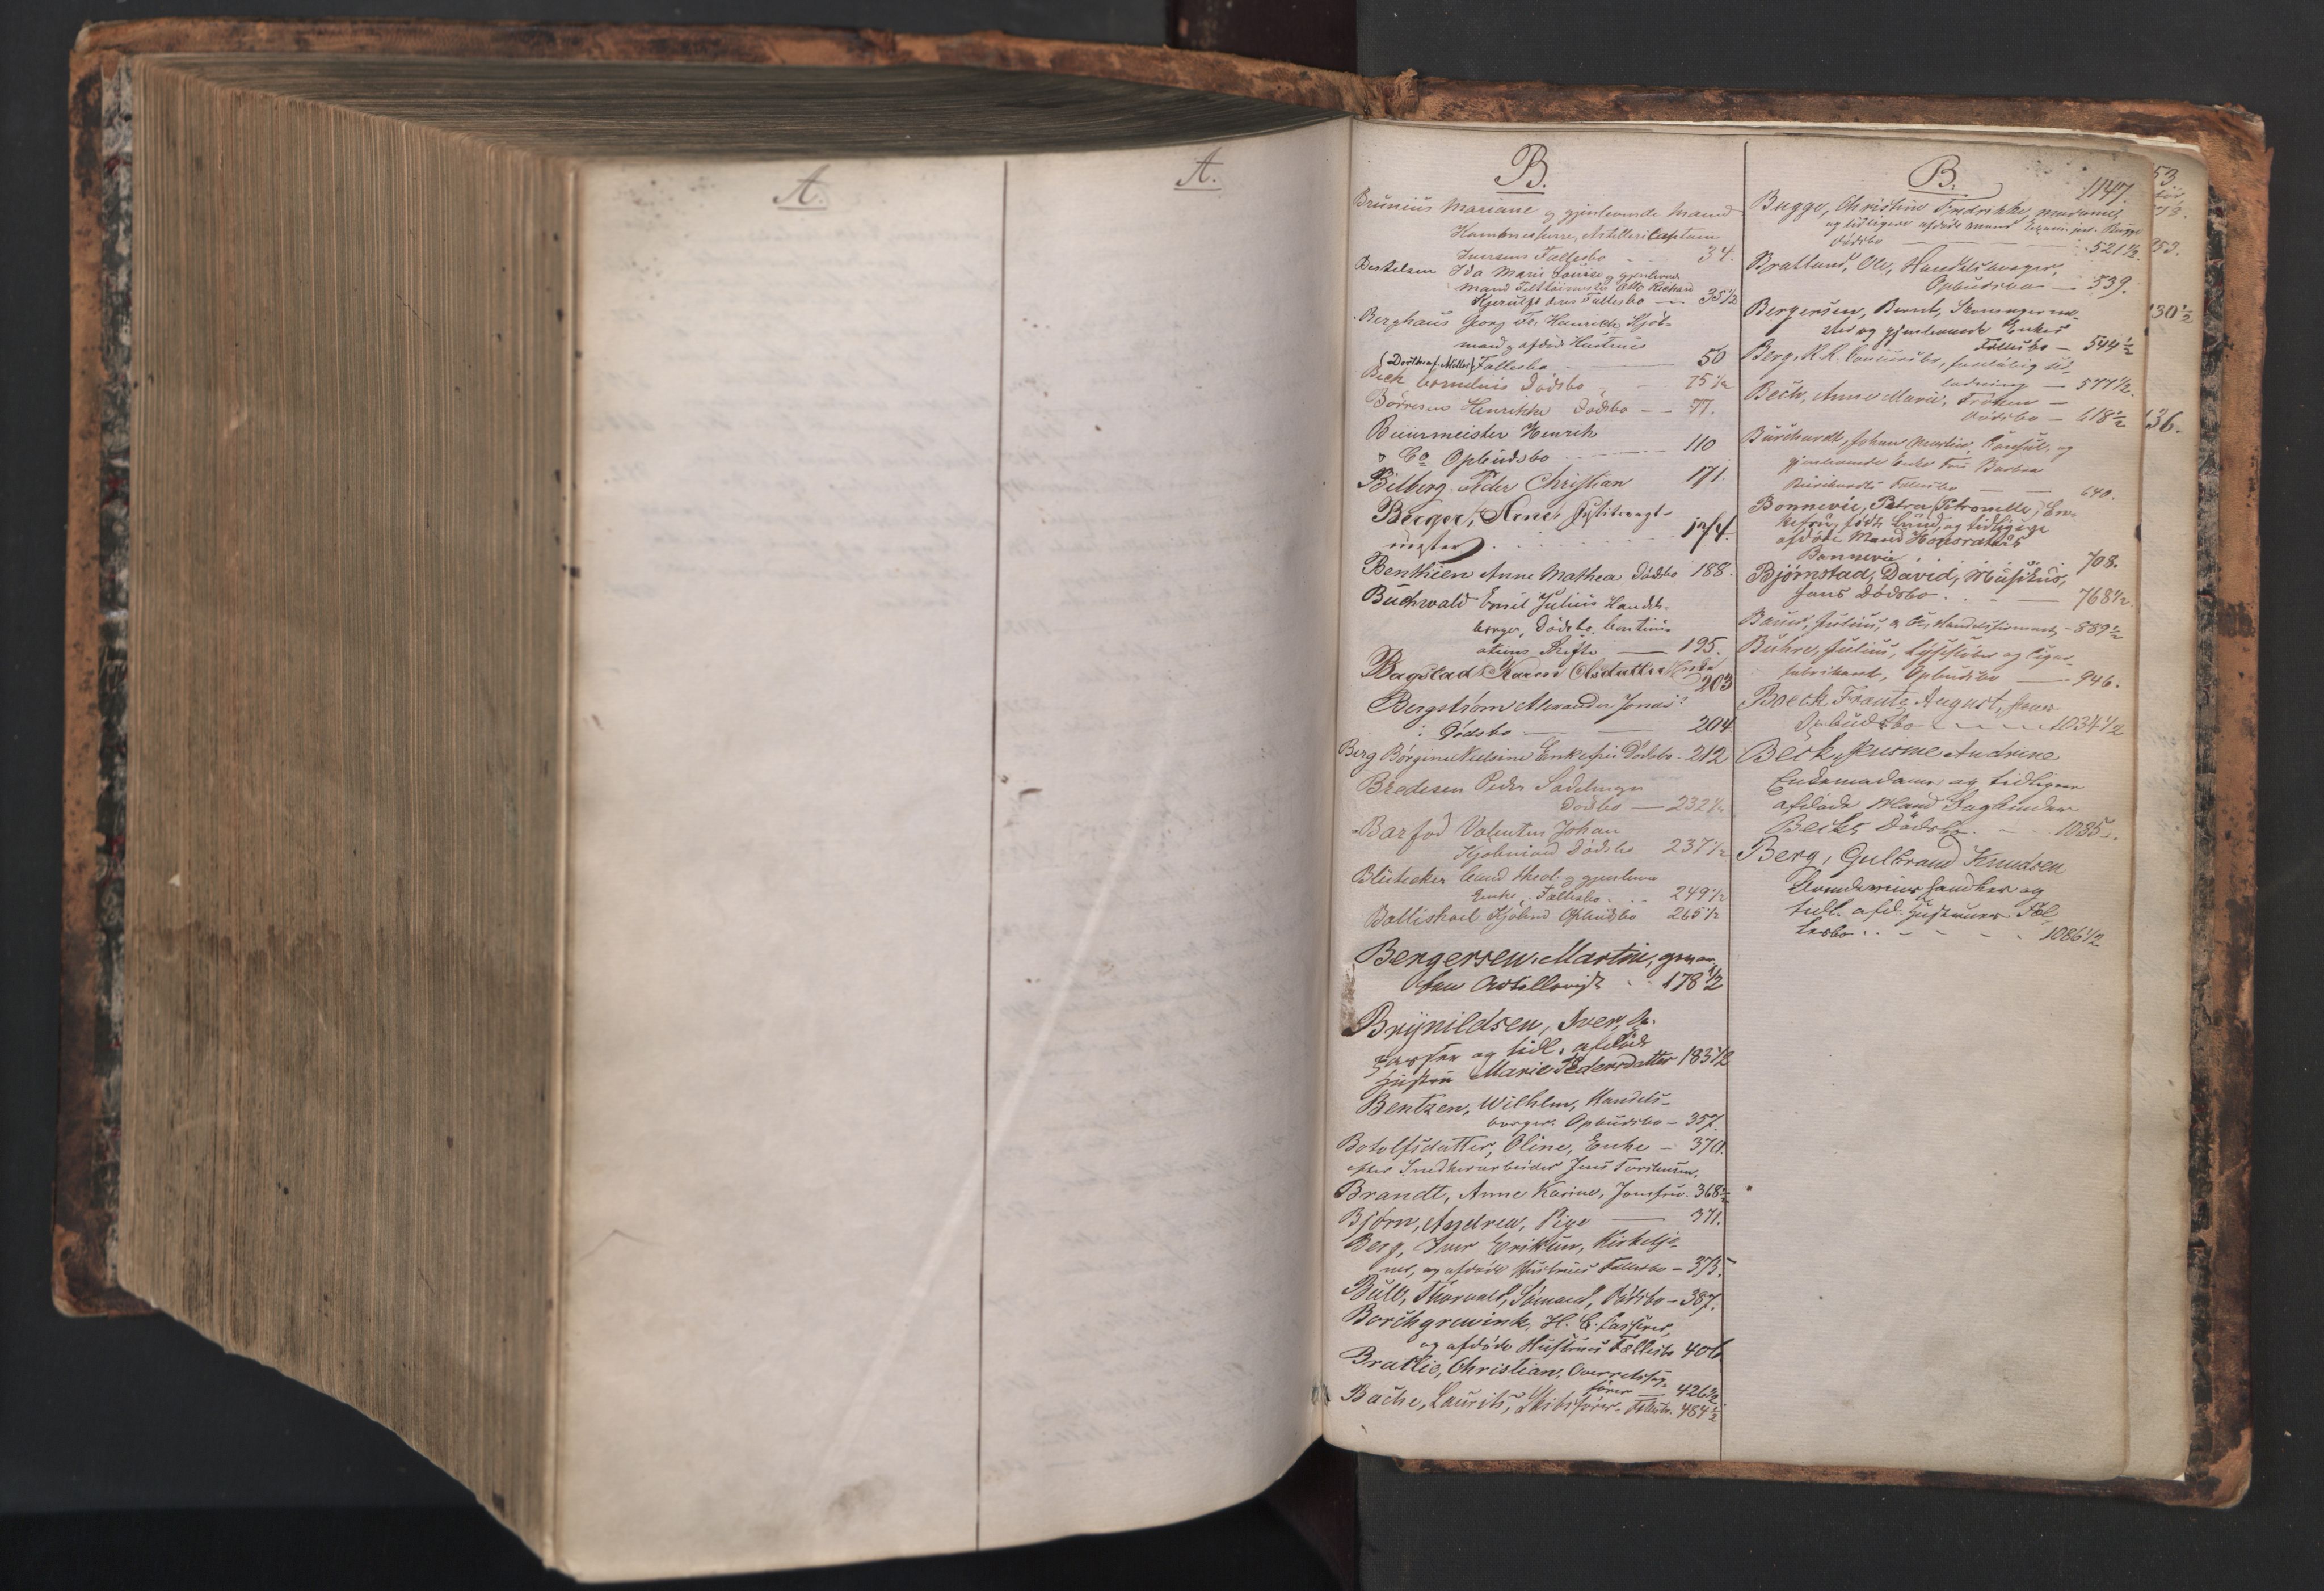 A.
A.
B.
Brunius Mariane og gjenlevende Mand
Iversens Fællesbo 34.
Bertelsen Ida Marie Louise og gjenlevende
Mand Otto Richard
Kjerulfs deres Fællesbo — 35½
Berghaus Georg Fr. Henrich, Kjøb-
mand og afdøde Hustrues
Fællesbo — 50
Bech Cornelius Dødsbo 75½
Børresen Henrikke Dødsbo — 77.
Buurmeister Henrik
& Co Opbudsbo 110
Bilberg Peder Christian 171.
Berger, Arne,
mester 174.
Benthien Anne Mathea Dødsbo 188.
Buchwald Emil Julius Handels-
borger, Dødsbo.
Skifte — 195.
Bagstad Karen Olsdatter
203
Bergstrøm Alexander Jonas
Dødsbo — 204
Berg Børgine Nielsine Enkefrue Dødsbo 212
Bredesen Peder Sadelmager
Dødsbo — 232½
Barfod Valentin Johan
Kjøbmand Dødsbo 237½
Cand. theol. og gjenlevende
Enke, Fællesbo 249½
Opbudsbo 265½
Bergersen, Martin,
178½
Brynildsen, Iver,
og tidl. afdøde
Hustru Marie Pedersdatter 183½
Bentzen, Wilhlm, Handels-
borger. Opbudsbo — 357.
Botolfsdatter, Oline, Enke — 370.
efter Snedkerarbeider Jens Torstensen.
Brandt, Anne Karine, Jomfru. 368½
Bjørn, Andrea, Pige — 371.
Berg, Iver Eriksen, Kirketje-
ner, og afdøde Hustrues Fællesbo — 375.
Bull, Thorvald, Sømand, Dødsbo — 387.
Borchgrewink, H. C. Casserer,
og afdøde Hustrues Fællesbo 406
Bratlie, Christian, Overretssag-
fører — 426½
Bache, Laurits, Skibsfører. Fællesbo. 484½
B.
1147.
Bugge, Christine Fredrikke, Madame,
og tidligere afdøde Mand Bugge
Dødsbo — 521½.
Bratlund, Ole, Handelsborger,
Opbudsbo — 539.
Bergersen, Bernt, Skomagerme-
ster og gjenlevende Enkes
Fællesbo — 544½
Berg, K. R. Concursbo, foreløbig Ud-
lodning — 577½.
Bech, Anne Marie, Frøken —
Dødsbo — 618½
Burchardt, Johan Martin, Consul, og
gjenlevende Enke Fru Barbra
Burchardts Fællesbo — 640.
Bonnevie, Petra Petronelle, En-
kefru, født Lund, og tidligere
afdøde Mand Honoratus
Bonnevie 708.
Bjørnstad, David, Musikus,
hans Dødsbo 768½.
Bauer, Julius, & Co, Handelsfirmaet, — 889½
Buhre, Julius, Lysestøber og Cigar-
fabrikant, Opbudsbo — 946.
Broch Frantz August,
Opbudsbo 1034½
Beck,
Enkemadame og tidligere
afdøde Mand Bogbinder
Becks Dødsbo. 1085.
Berg, Gulbrand Knudsen
og
tidl. afd. Hustrues Fæl-
lesbo 1086½
53.
253.
130½
136.